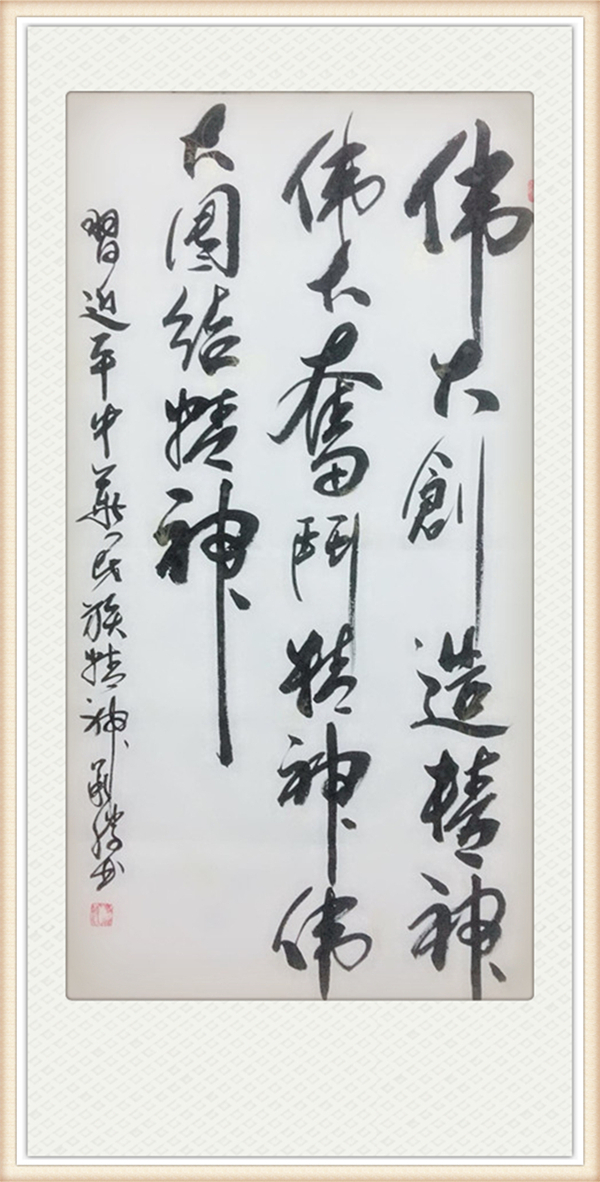 伟大創造精神
伟大奮鬥精神伟
大團结精神
習近平中華民族精神